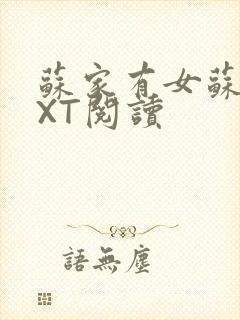 蘇家有女蘇
XT閱讀
語無塵